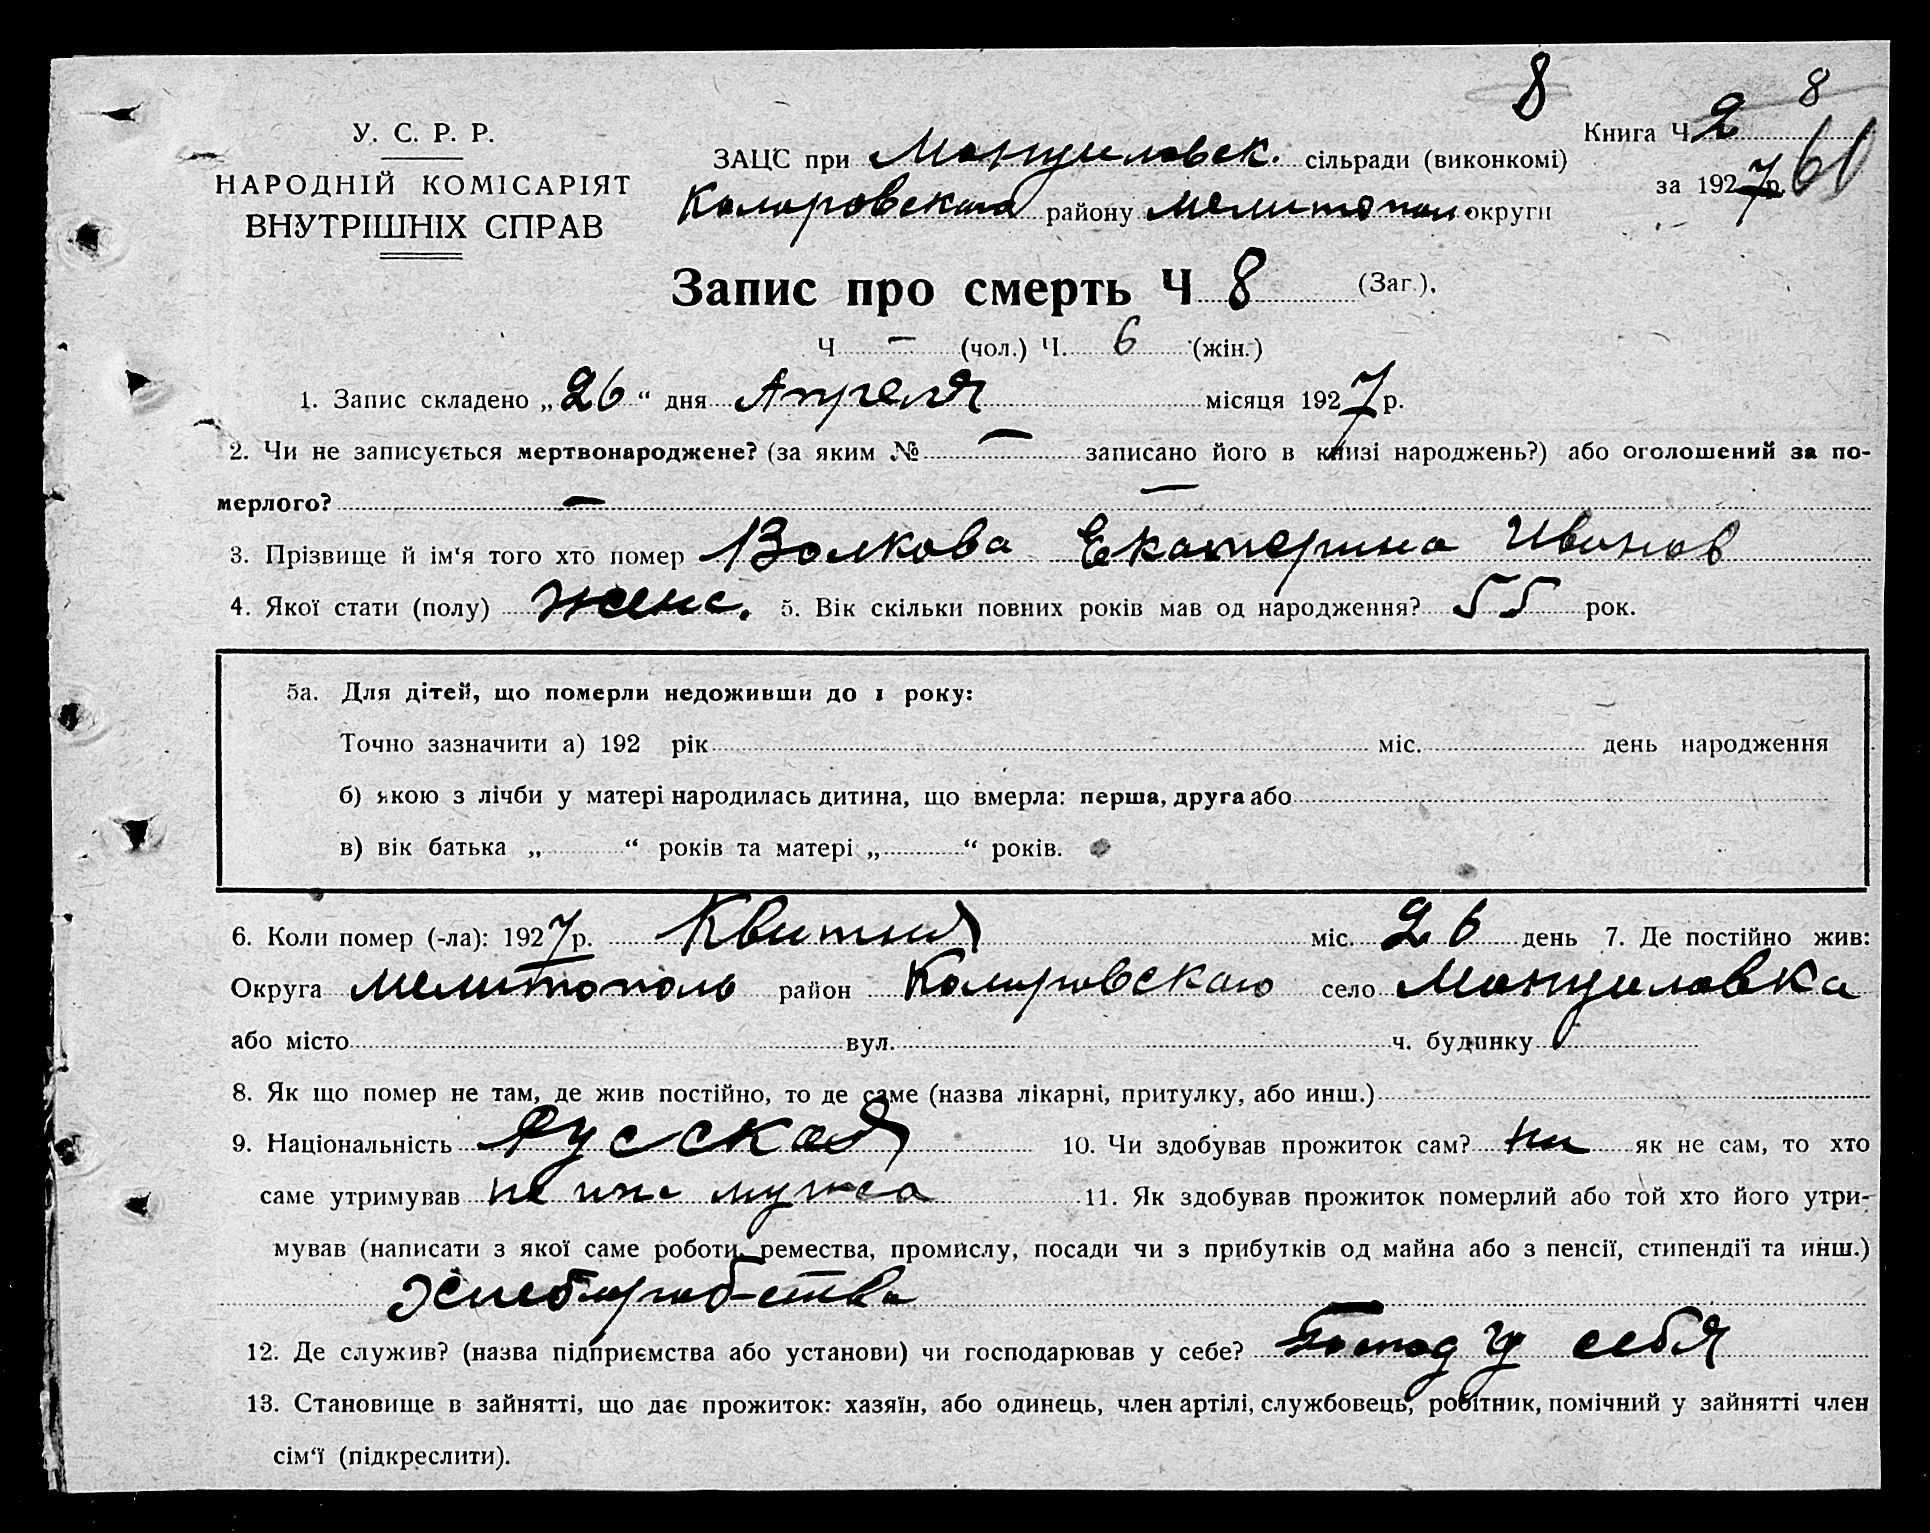 8
8
У. С. Р. Р.
НАРОДНІЙ КОМІСАРІЯТ
ВНУТРІШНІХ СПРАВ
ЗАЦС при Мануиловск. сільради (виконкомі)
Коларовского району Мелитопол округи
Книга Ч. 2
за 1927 р. 60
Запис про смерть Ч 8 (Заг.).
Ч — (чол.) Ч. 6 (жін.)
1. Запис складено „26“ дня Апреля місяця 1927 р.
2. Чи не записується мертвонароджене? (за яким № — записано його в книзі народжень?) або оголошений за по-
мерлого? — —
3. Прізвище й ім‘я того хто помер Волкова Екатерина Иванов
4. Якої стати (полу) женс. 5. Вік скільки повних років мав од народження? 55 рок.
5а. Для дітей, що померли недоживши до 1 року:
Точно зазначити а) 192 рік міс. день народження
б) якою з лічби у матері народилась дитина, що вмерла: перша, друга або
в) вік батька „ “ років та матері „ “ років.
6. Коли помер (-ла): 1927 р. Квитня міс. 26 день 7. Де постійно жив:
Округа Мелитополь район Коларовского село Мануиловка
або місто вул. ч. будинку
8. Як що помер не там, де жив постійно, то де саме (назва лікарні, притулку, або инш.)
9. Національність Русская 10. Чи здобував прожиток сам? ни як не сам, то хто
саме утримував мужа 11. Як здобував прожиток померлий або той хто його утри-
мував (написати з якої саме роботи, ремества, промислу, посади чи з прибутків од майна або з пенсії, стипендії та инш.)
Хлеборобства
12. Де служив? (назва підприємства або установи) чи господарював у себе? Господ у себя
13. Становище в зайнятті, що дає прожиток: хазяїн, або одинець, член артілі, службовець, робітник, помічний у зайнятті член
сім‘ї (підкреслити).